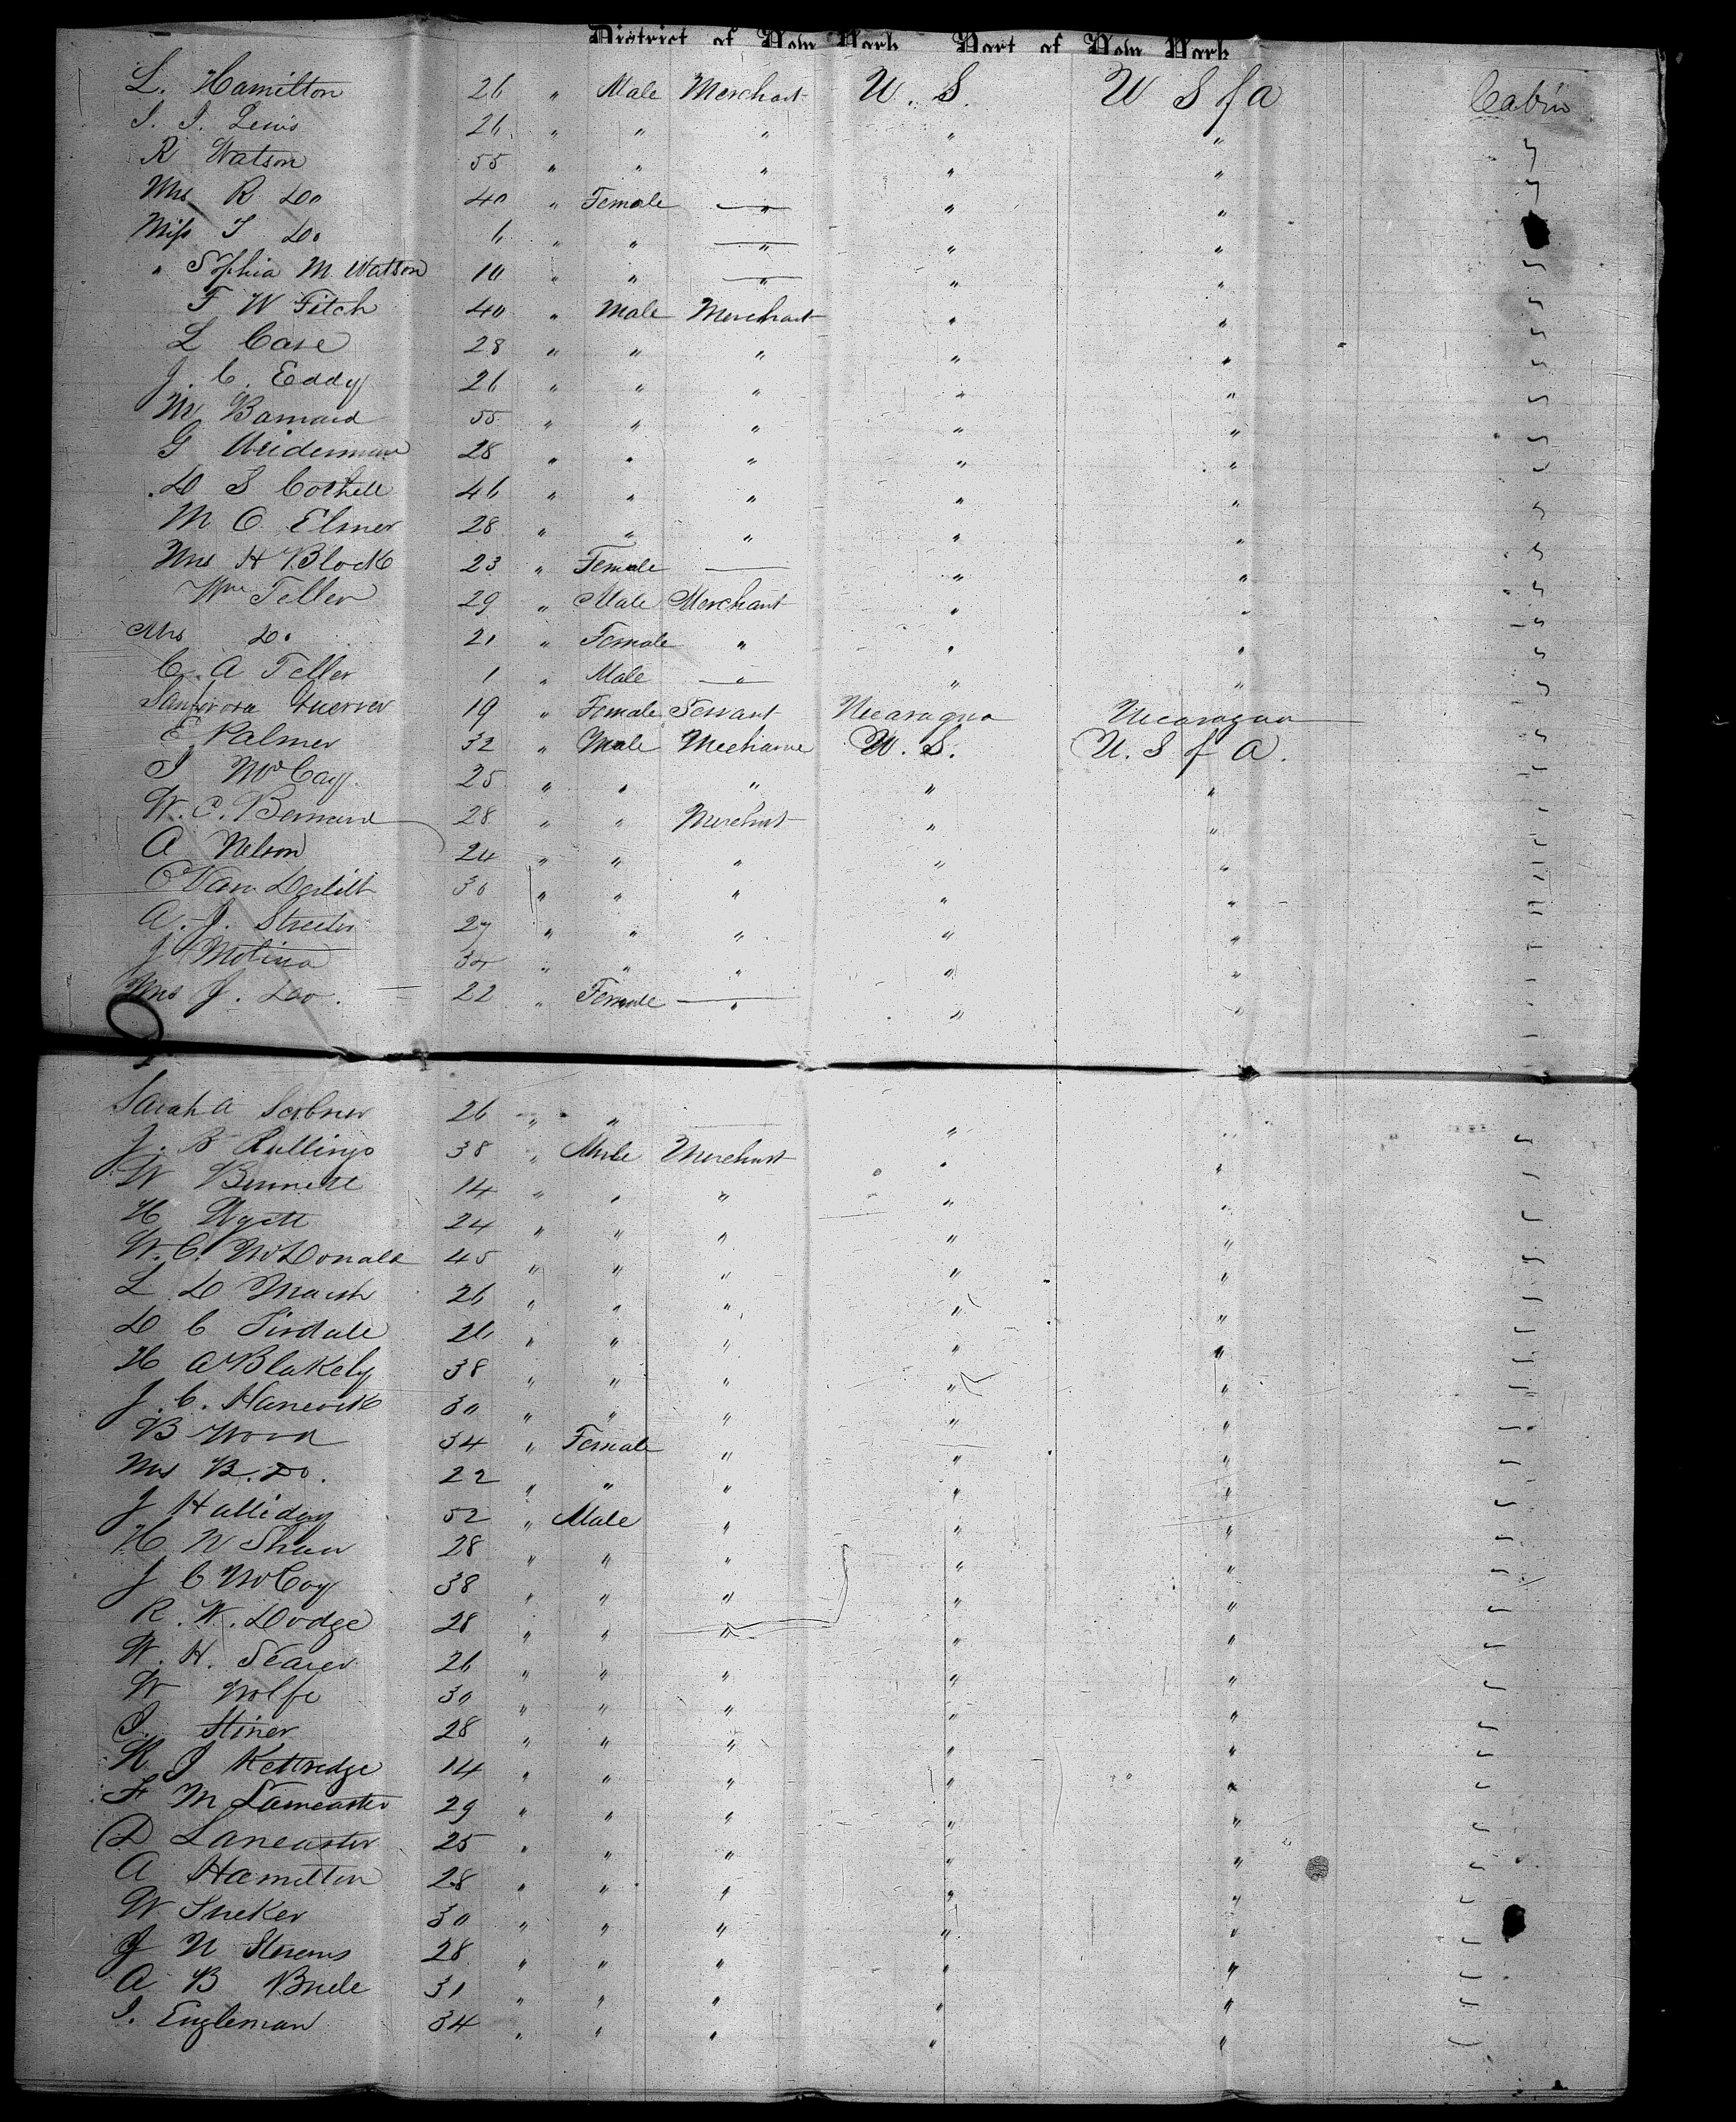 District of New York Port of New York
L. Hamilton 26 " Male Merchant U. S. U S of A Cabin
I. I. Lewis 26 " " " " "
R Watson 55 " " " " "
Mrs R Do 40 " Female " " "
Miss I Do 6 " " " " "
" Sophia M Watson 10 " " " " "
F W Fitch 40 " Male Merchant " "
L Case 28 " " " " "
J. C. Eddy 26 " " " " "
M Barnard 55 " " " " "
G Weiderman 28 " " " " "
D S Cothell 46 " " " " "
M O Elmer 28 " " " " "
Mrs H Block 23 " Female — " "
Wm Teller 29 " Male Merchant " "
Mrs Do 21 " Female " " "
C. A Teller 1 " Male " " "
Guerrer 19 " Female Servant Nicaragua Nicaragua
E Palmer 32 " Male Mechanic U. S. U. S of A.
I McCay 25 " " " " "
W. C. Bernard 28 " " Merchant " "
A Nelson 24 " " " " "
O Van Derbilt 30 " " " " "
A. J. Streeter 27 " " " " "
J Molina 34 " " " " "
Mrs J. Do. 22 " Female " " "
Sarah A Scribner 26 " " " "
J. B Rullings 38 " Male Merchant " "
W Bennett 14 " " " " "
H Wyett 24 " " " " "
W. C. McDonald 45 " " " " "
L D Marsh 26 " " " " "
D C Tisdale 26 " " " " "
H A Blakely 38 " " " " "
J. C. Hancock 30 " " " " "
B Wood 34 " Female " " "
Mrs B. Do. 22 " " " " "
J Halliday 52 " Male " " "
H W Shaw 28 " " " " "
J C McCoy 38 " " " " "
R. W. Dodge 28 " " " " "
W. H. Searer 26 " " " " "
W Wolfe 30 " " " " "
I. Stiner 28 " " " " "
R J Kettredge 14 " " " " "
F M Lancaster 29 " " " " "
D Lancaster 25 " " " " "
A Hamilton 28 " " " " "
W Sneker 30 " " " " "
J N Stevens 28 " " " " "
A B Buele 31 " " " " "
I. Engleman 34 " " " " "